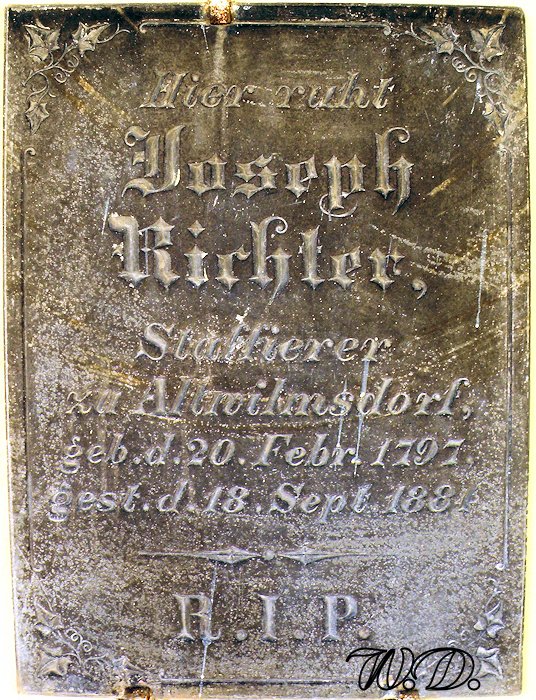 Hier ruht
Joseph
Richter,
Staffierer
zu Altwilmsdorf,
geb. d. 20. Febr. 1797.
gest. d. 18. Sept.
R.I.P.
W.D.